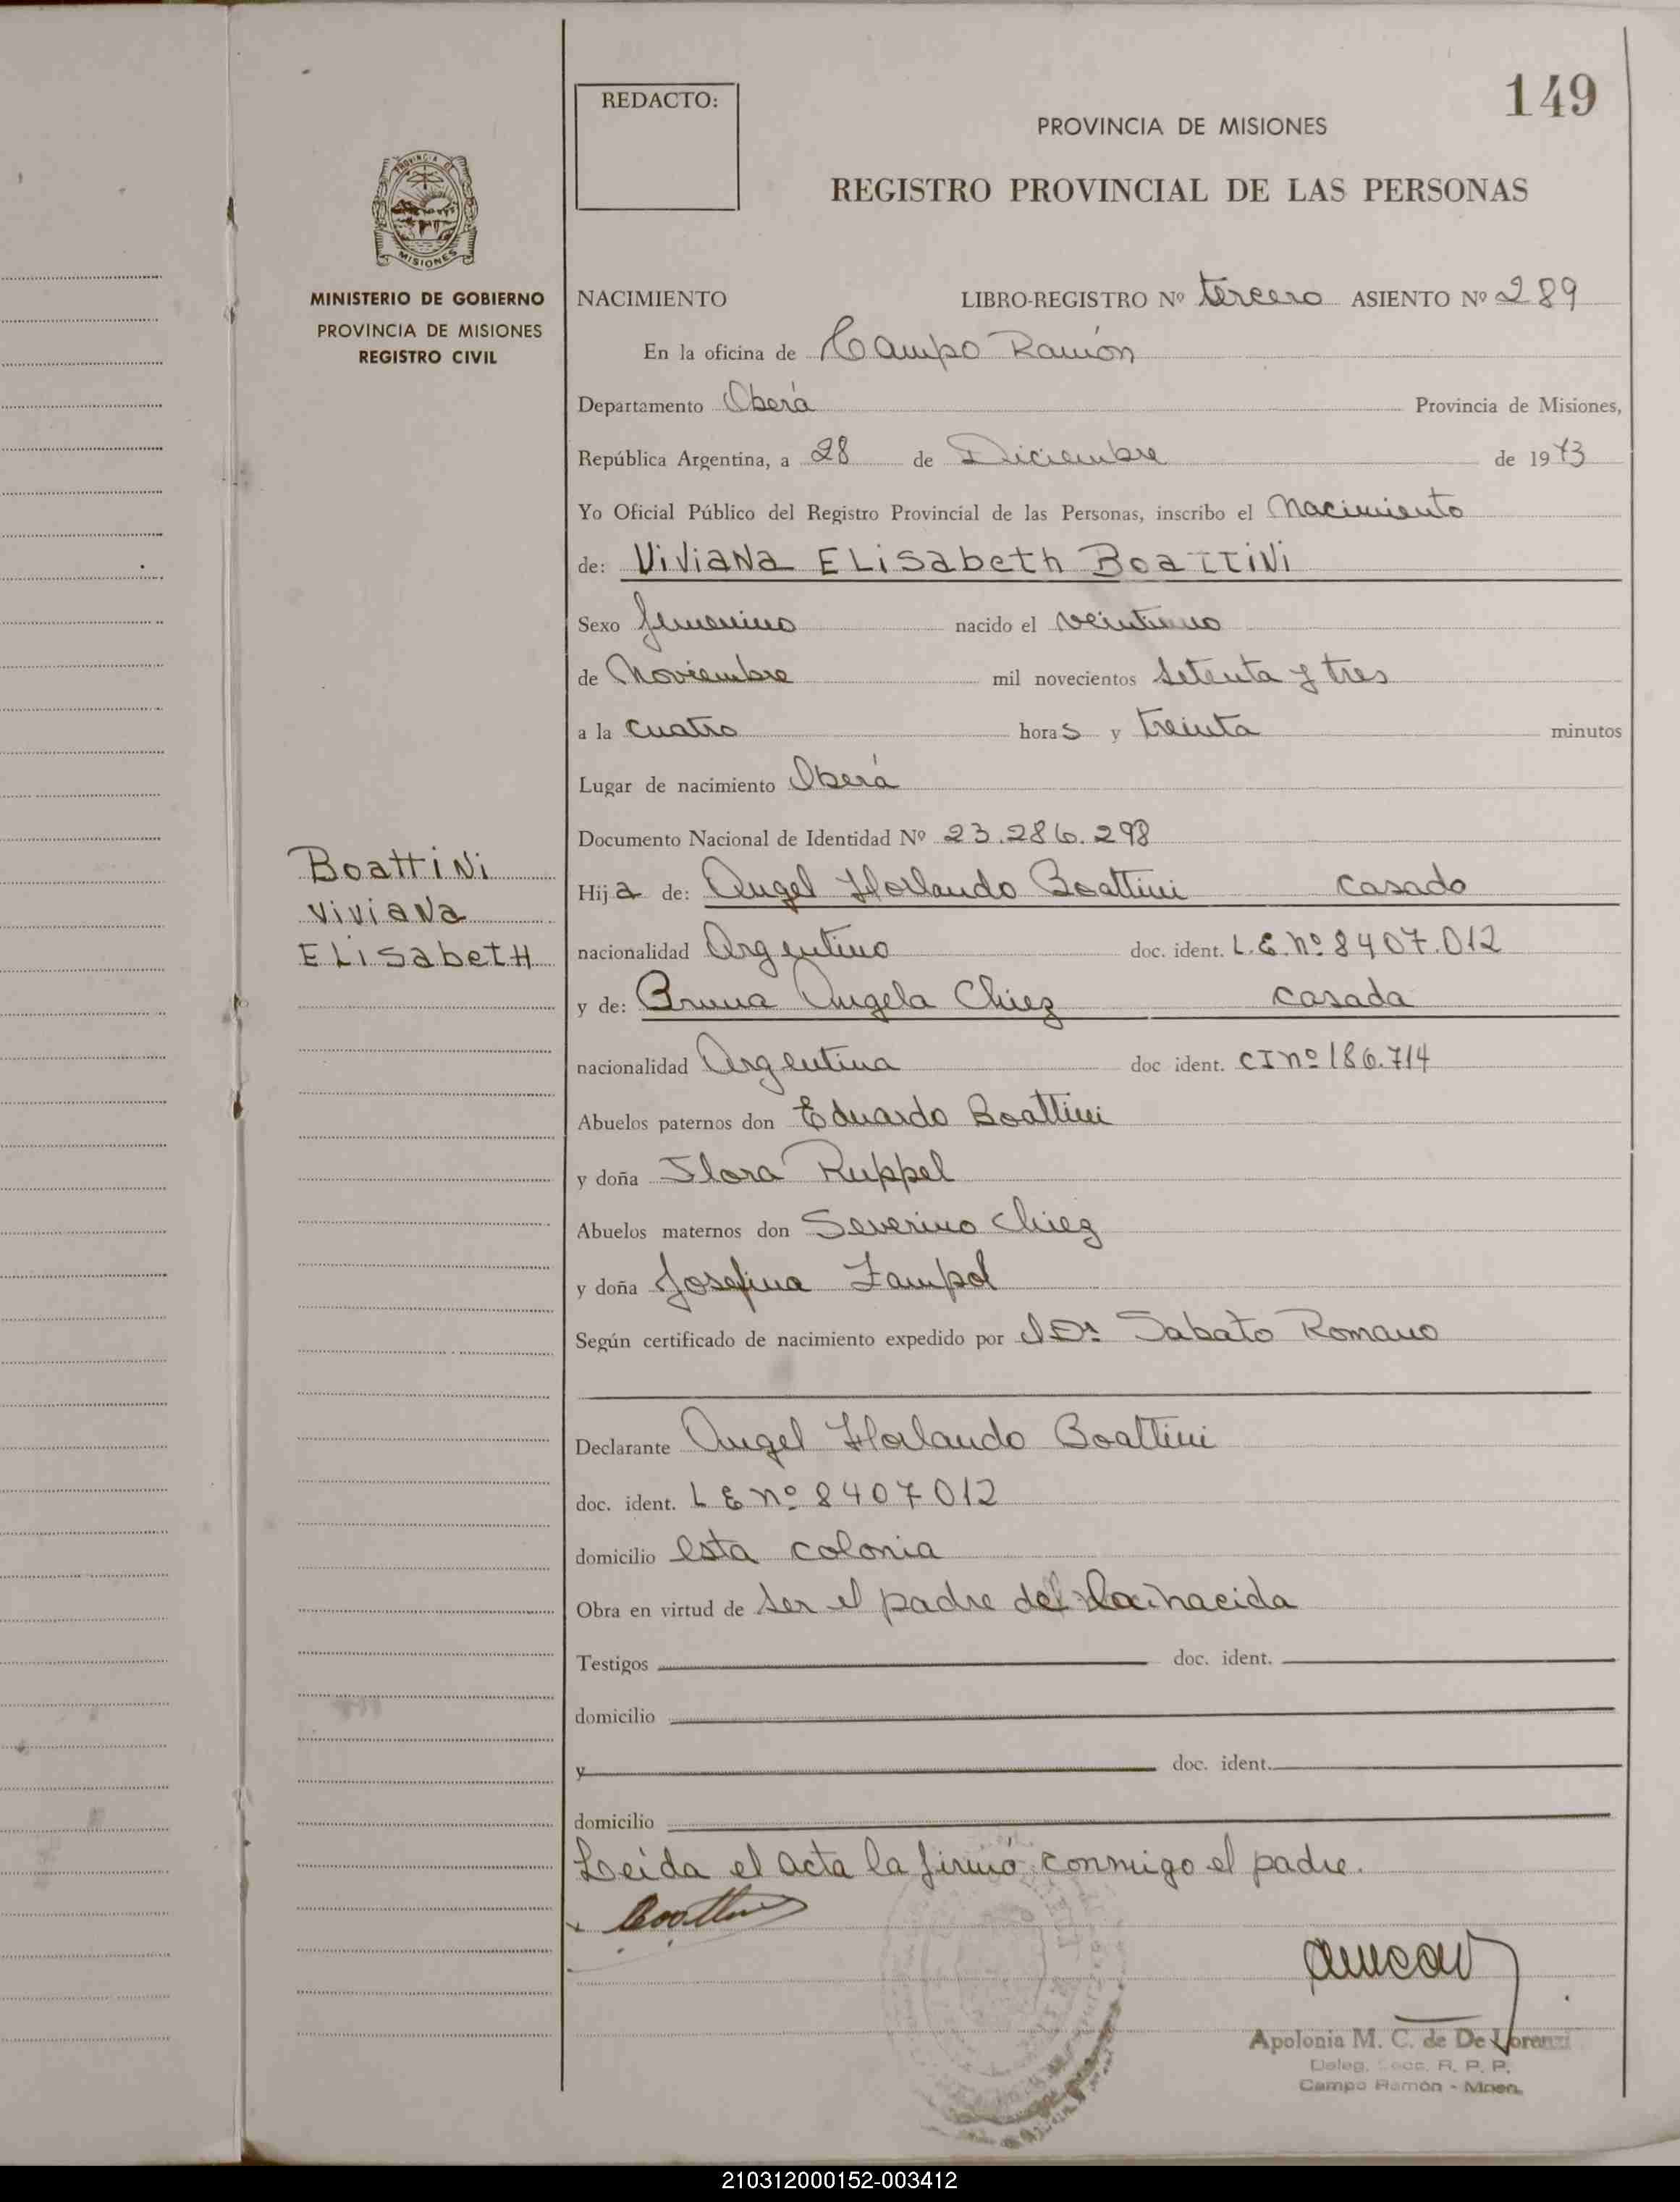 149
REDACTO:
PROVINCIA DE MISIONES
REGISTRO PROVINCIAL DE LAS PERSONAS
MINISTERIO DE GOBIERNO
PROVINCIA DE MISIONES
REGISTRO CIVIL
NACIMIENTO LIBRO-REGISTRO Nº tercero ASIENTO Nº 289
En la oficina de Campo Ramón
Departamento Oberá Provincia de Misiones,
República Argentina, a 28 de Diciembre de 1973
Yo Oficial Público del Registro Provincial de las Personas, inscribo el Nacimiento
de: Viviana Elisabeth Boattini
Sexo femenino nacido el veintiuno
de Noviembre mil novecientos setenta y tres
a la cuatro horas y treinta minutos
Lugar de nacimiento Oberá
Documento Nacional de Identidad Nº 23.286.298
Boattini
Viviana
Elisabeth
Hija de: Angel Horlando Boattini casado
nacionalidad Argentino doc. ident. L.E. nº 8407.012
y de: Bruna Angela Chiez casada
nacionalidad Argentina doc ident. CI nº 186.714
Abuelos paternos don Eduardo Boattini
y doña Flora Ruppel
Abuelos maternos don Severino Chiez
y doña Josefina Zampol
Según certificado de nacimiento expedido por Sabato Romano
Declarante Angel Horlando Boattini
doc. ident. L E nº 8407012
domicilio esta colonia
Obra en virtud de ser el padre de la nacida
Testigos doc. ident.
domicilio
y doc. ident.
domicilio
Leída el acta la firmó conmigo el padre.
Boattini
Apolonia M. C. de De Lorenzi
Deleg. Secc. R. P. P.
Campo Ramón - Mnes.
210312000152-003412